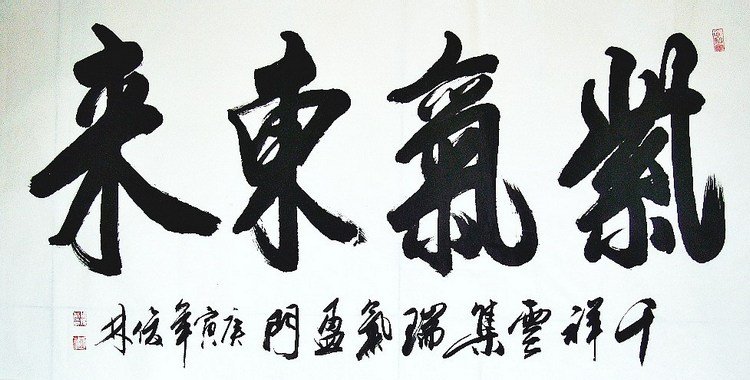 紫氣東来
千祥雲集瑞氣盈門庚寅年俊林